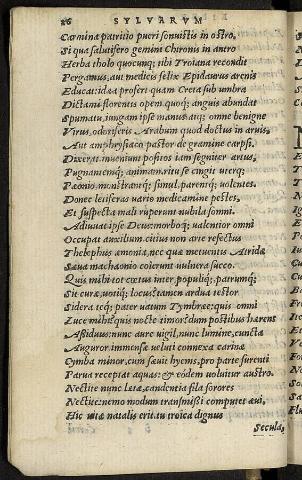 26 SYLVARVM
Carmina patritio pueri sonuistis in ostro,
Si qua salutifero gemini Chironis in antro
Herba tholo quocunq; tibi Troiana recondit
Pergamus, aut medicis felix Epidaurus arenis
Educat: idæa profert quam Creta sub umbra
Dictami florentis opem. quoq; anguis abundat
Spumatu, iungam ipse manus atq; omne benigne
Virus, odoriferis Arabum quod doctus in aruis,
Aut amphrysiaco pastor de gramine carpsi.
Dixerat. inueniun positos iam segniter artus,
Pugnantemq; animam. ritu se cingit uterq;
Pæonio. monstrantq; simul. parentq; uolentes.
Donec letiferas uario medicamine pestes,
Et suspecta mali ruperunt nubila somni.
Adiuuat ipse Deus: morboq; ualentior omni
Occupat auxilium. citius non arte refectus
Thelephus æmonia, nec quæ metuentis Atridæ
Sæua machaonio coierunt uulnera succo.
Quis mihi tot cœtus inter, populiq; patrumq;
Sit curæ, uotiq; locus? tamen ardua testor
Sidera teq; pater uatum Tymbræe: quis omni
Luce mihi: quis nocte timor: dum postibus hærens
Assiduus: nunc aure uigil, nunc lumine, cuncta
Auguror. immensæ ueluti connexa carinæ
Cymba minor, cum sæuit hyems, pro parte furenti
Parua receptat aquas: & eodem uoluitur austro.
Nectite nunc Letæ, candentia fila sorores
Nectite: nemo modum transmissi computet æui,
Hic uitæ natalis erit. tu troica dignus
Secula,